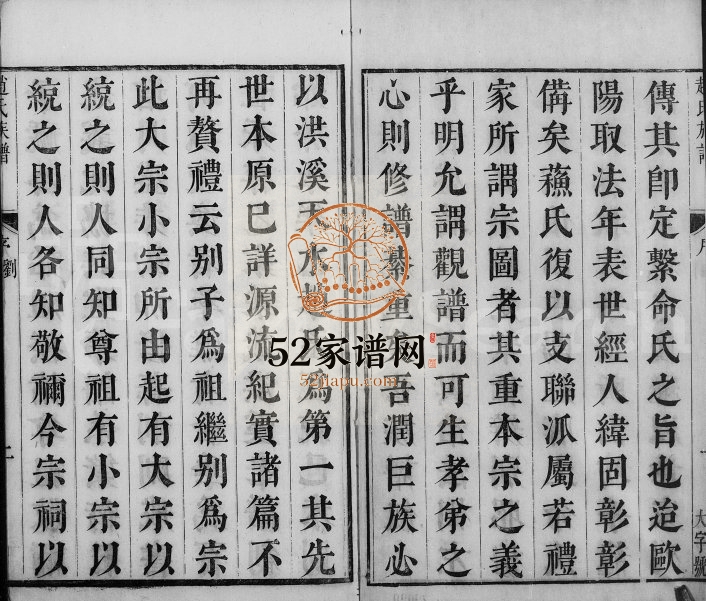 傳其卽定繫命氏之旨也迨歐
陽取法年表世經人緯固彰彰
備矣蘓氏復以支聯泒屬若禮
家所謂宗圖者其重本宗之義
乎明允謂觀譜而可生孝弟之
心則修譜綦重矣吾潤巨族必
以洪溪天水趙氏爲第一其先
世本原已詳源流紀實諸篇不
再贅禮云别子爲祖繼别爲宗
此大宗小宗所由起有大宗以
統之則人同知尊祖有小宗以
統之則人各知敬禰今宗祠以
趙氏族譜
大字號
52家谱网
52jiapu.com